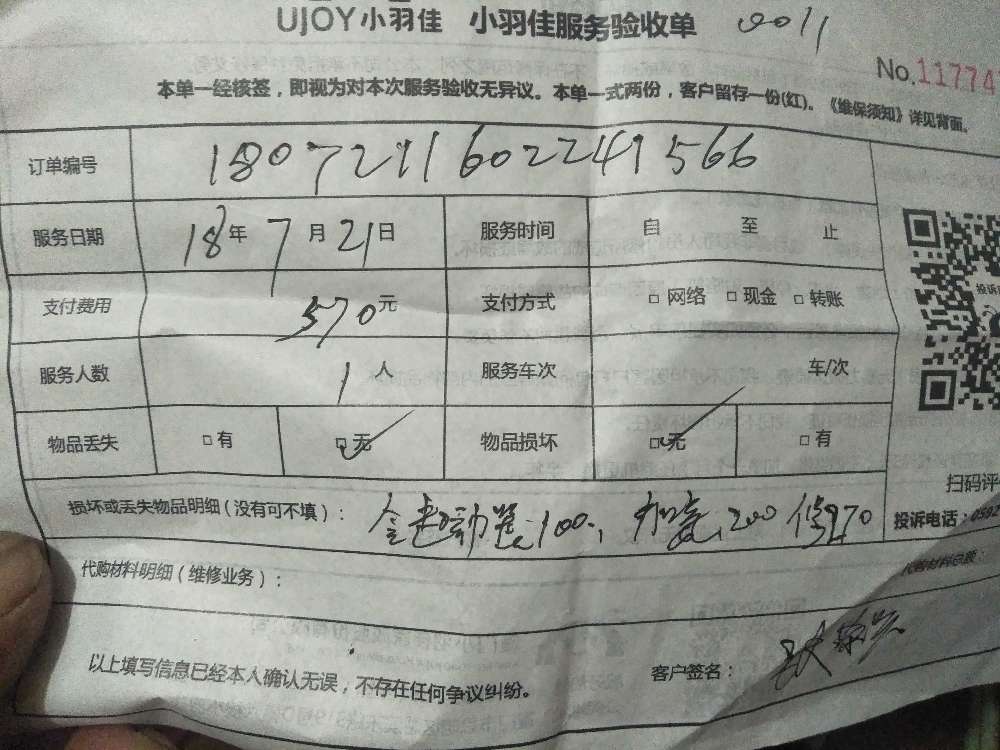 UJOY 小羽佳 小羽佳服务验收单 0011
No.11774
本单一经核签，即视为对本次服务验收无异议。本单一式两份，客户留存一份(红)。《维保须知》详见背面。
订单编号 180721160224 9566
服务日期 18年 7月 21日 服务时间 自 至 止
支付费用 570元 支付方式 □网络 □现金 □转账
服务人数 1人 服务车次 车/次
物品丢失 □有 □无 物品损坏 □无 □有
损坏或丢失物品明细（没有可不填）： 100, 200 270
扫码评
投诉电话：0592
代购材料明细（维修业务）： 代购材料总额：
以上填写信息已经本人确认无误，不存在任何争议纠纷。 客户签名：